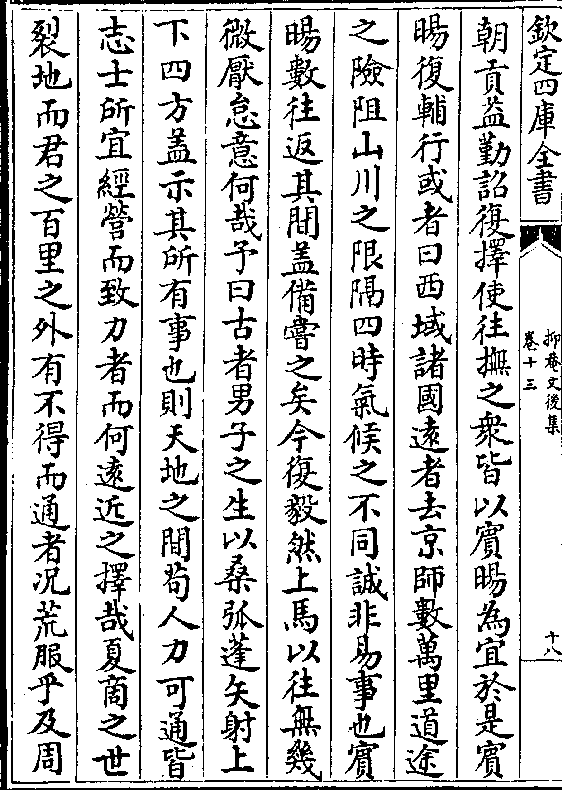 欽定四庫全書
抑菴文後集
卷十三
十八
朝貢益勤詔復擇使往撫之衆皆以賓暘為宜於是賓
暘復輔行或者曰西域諸國逺者去京師數萬里道途
之險阻山川之限隔四時氣候之不同誠非易事也賓
暘數往返其間盖備嘗之矣今復毅然上馬以往無幾
微厭怠意何哉予曰古者男子之生以桑弧蓬矢射上
下四方盖示其所有事也則天地之間苟人力可通皆
志士所宜經營而致力者而何逺近之擇哉夏商之世
裂地而君之百里之外有不得而通者况荒服乎及周